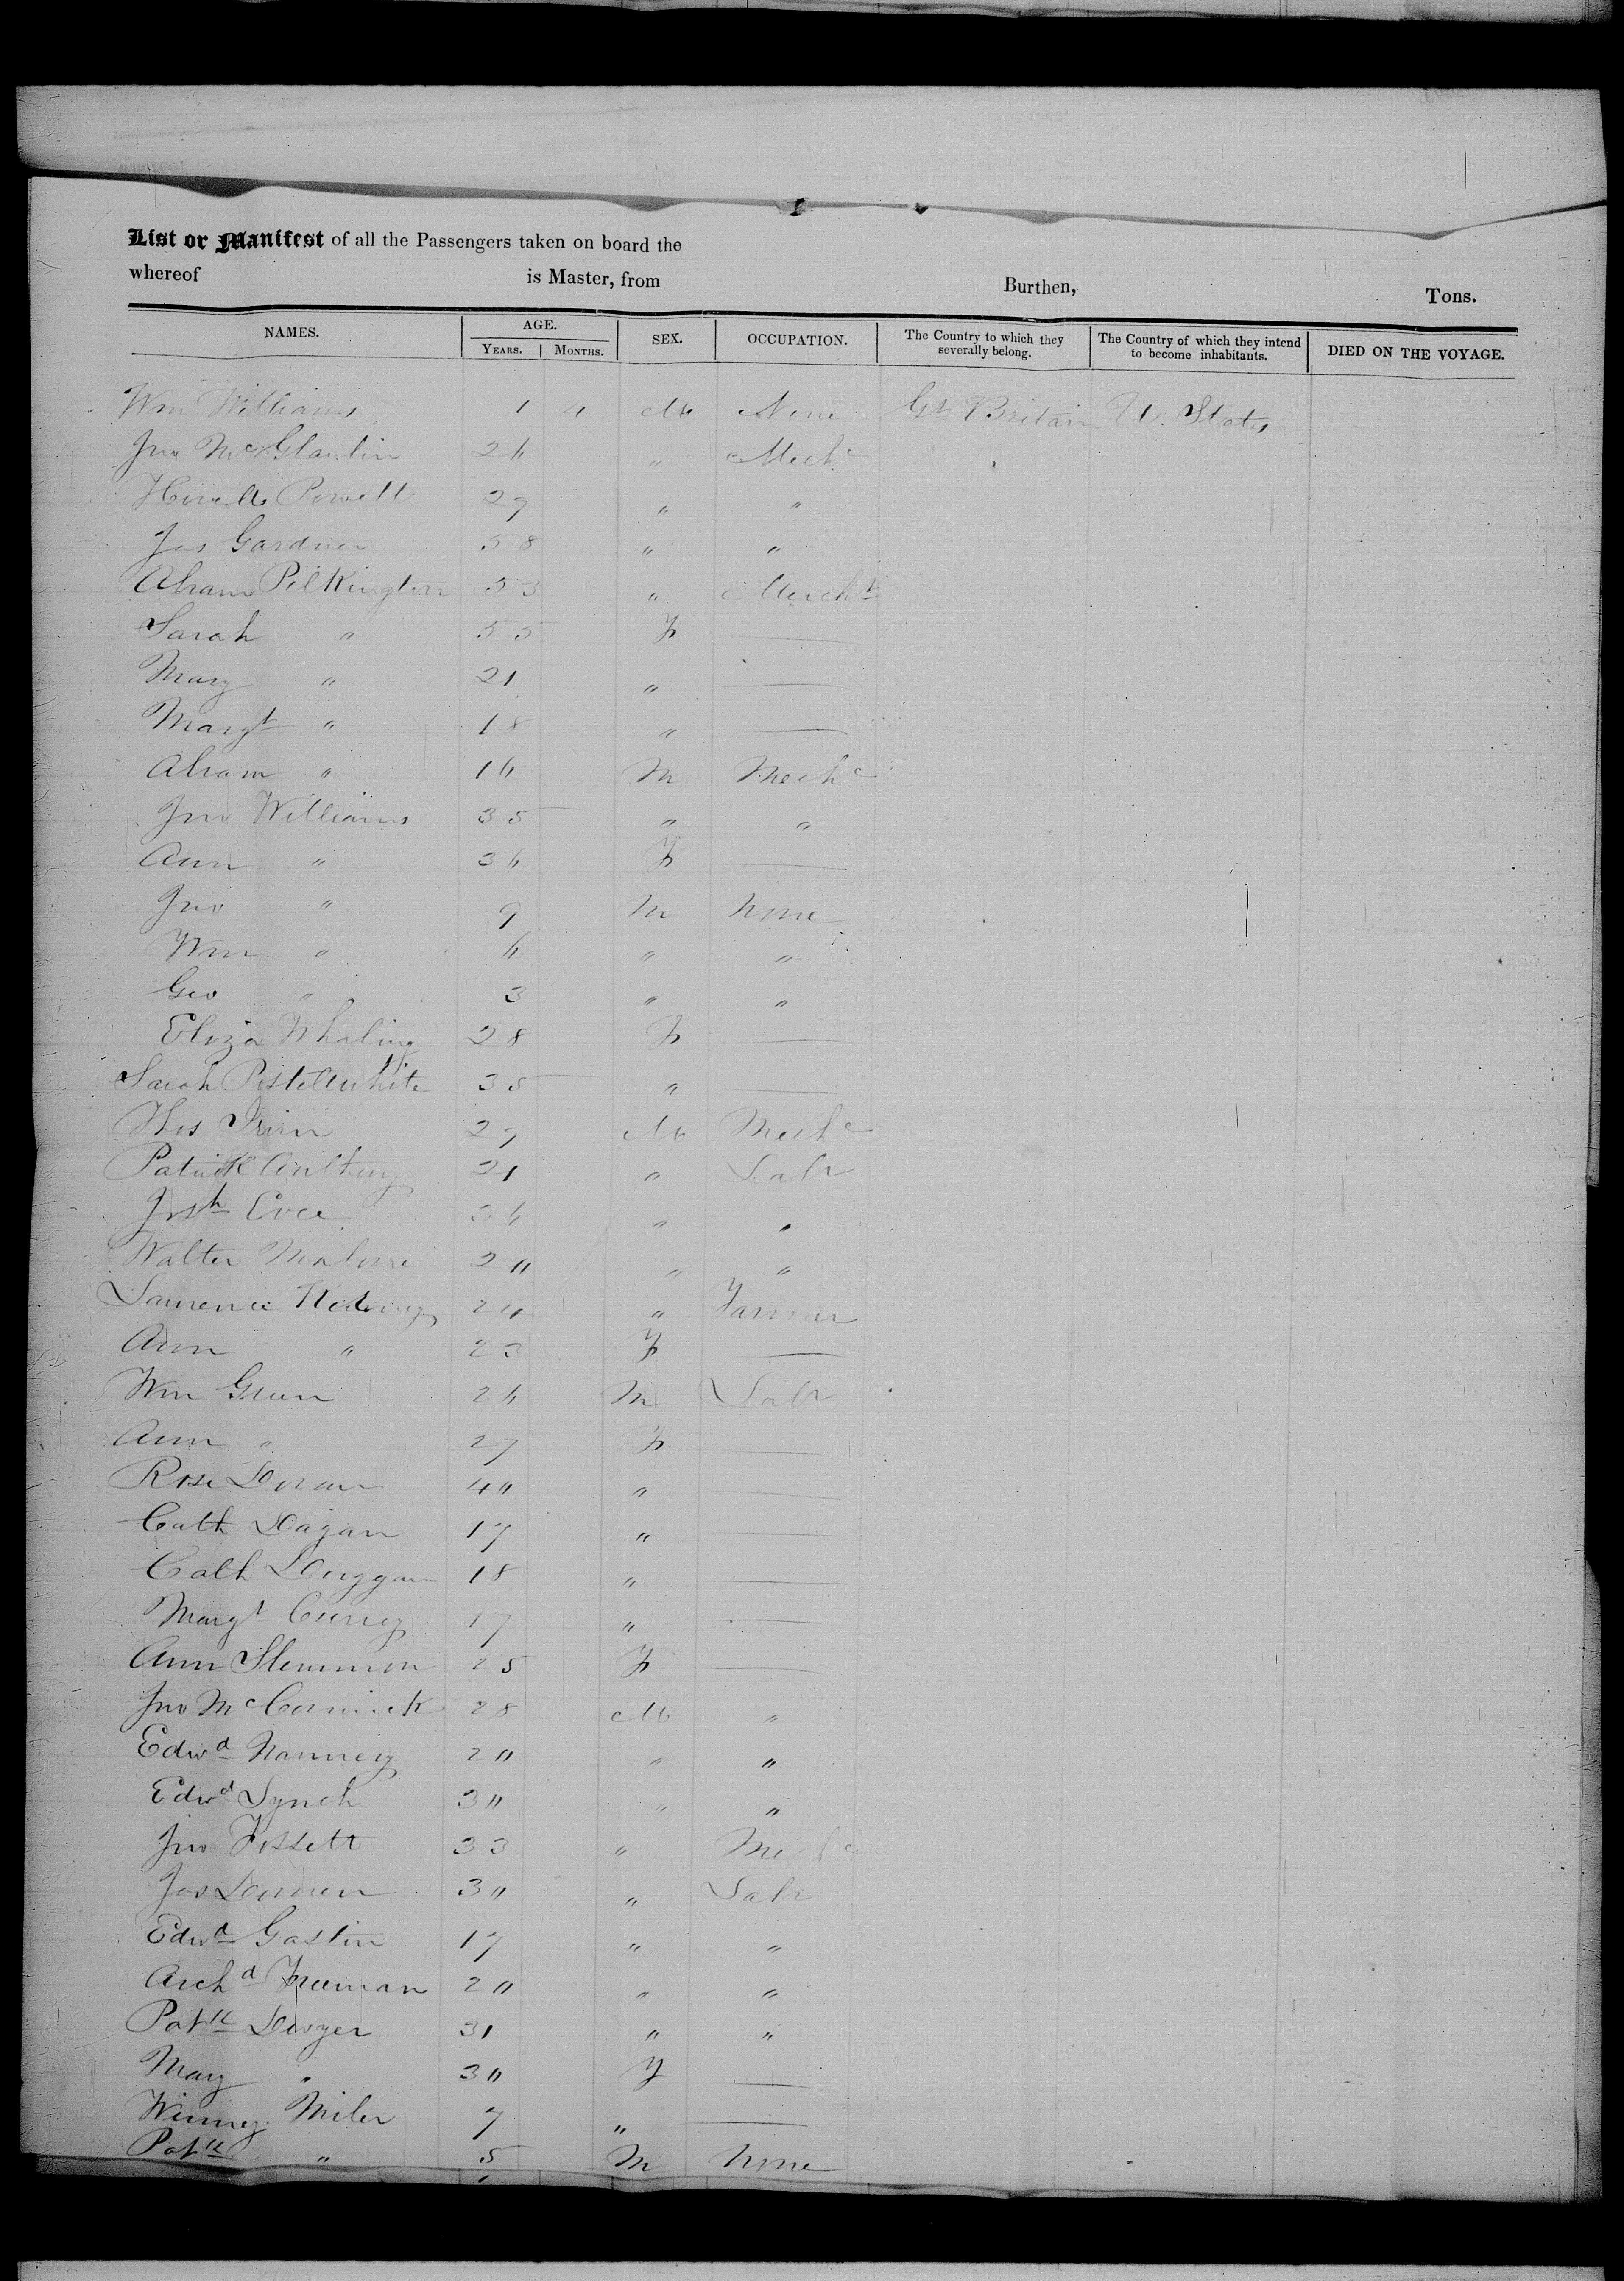 List or Manifest of all the Passengers taken on board the
whereof is Master, from Burthen, Tons.
NAMES. AGE. SEX. OCCUPATION. The Country to which they severally belong. The Country of which they intend to become inhabitants. DIED ON THE VOYAGE.
YEARS. MONTHS.
Wm Williams 1 " M None Gt Britain U. States
Jno McGlaulin 26 " Mechc
Powell 27 " "
Jas Gardner 58 " "
Abram Pilkington 53 " Mercht
Sarah " 55 F —
Mary " 21 " —
Margt " 18 " —
Abram " 16 M Mechc
Jno Williams 35 " "
Ann " 36 F —
Jno " 9 M None
Wm " 6 " "
Geo " 3 " "
Eliza Whaling 28 F —
Sarah Postellwhite 35 " —
Thos 27 M Mechc
Patrick 21 " Labr
Josh 36 " "
Walter Malone 20 " "
Laurence 20 " Farmer
Ann " 23 F —
Wm Green 26 M Labr
Ann " 27 F —
Rose Doran 40 " —
Cath Dagan 17 " —
Cath Duggan 18 " —
Margt Currey 17 " —
Ann Slemmon 25 F —
Jno McCormick 28 M "
Edwd Nanney 20 " "
Edwd Lynch 30 " "
Jno Fossett 33 " Mechc
Jas 30 " Labr
Edwd Gastin 17 " "
Archd Freeman 20 " "
Patk Dwyer 31 " "
Mary " 30 F —
Winney Miler 7 " —
Patk " 5 M None